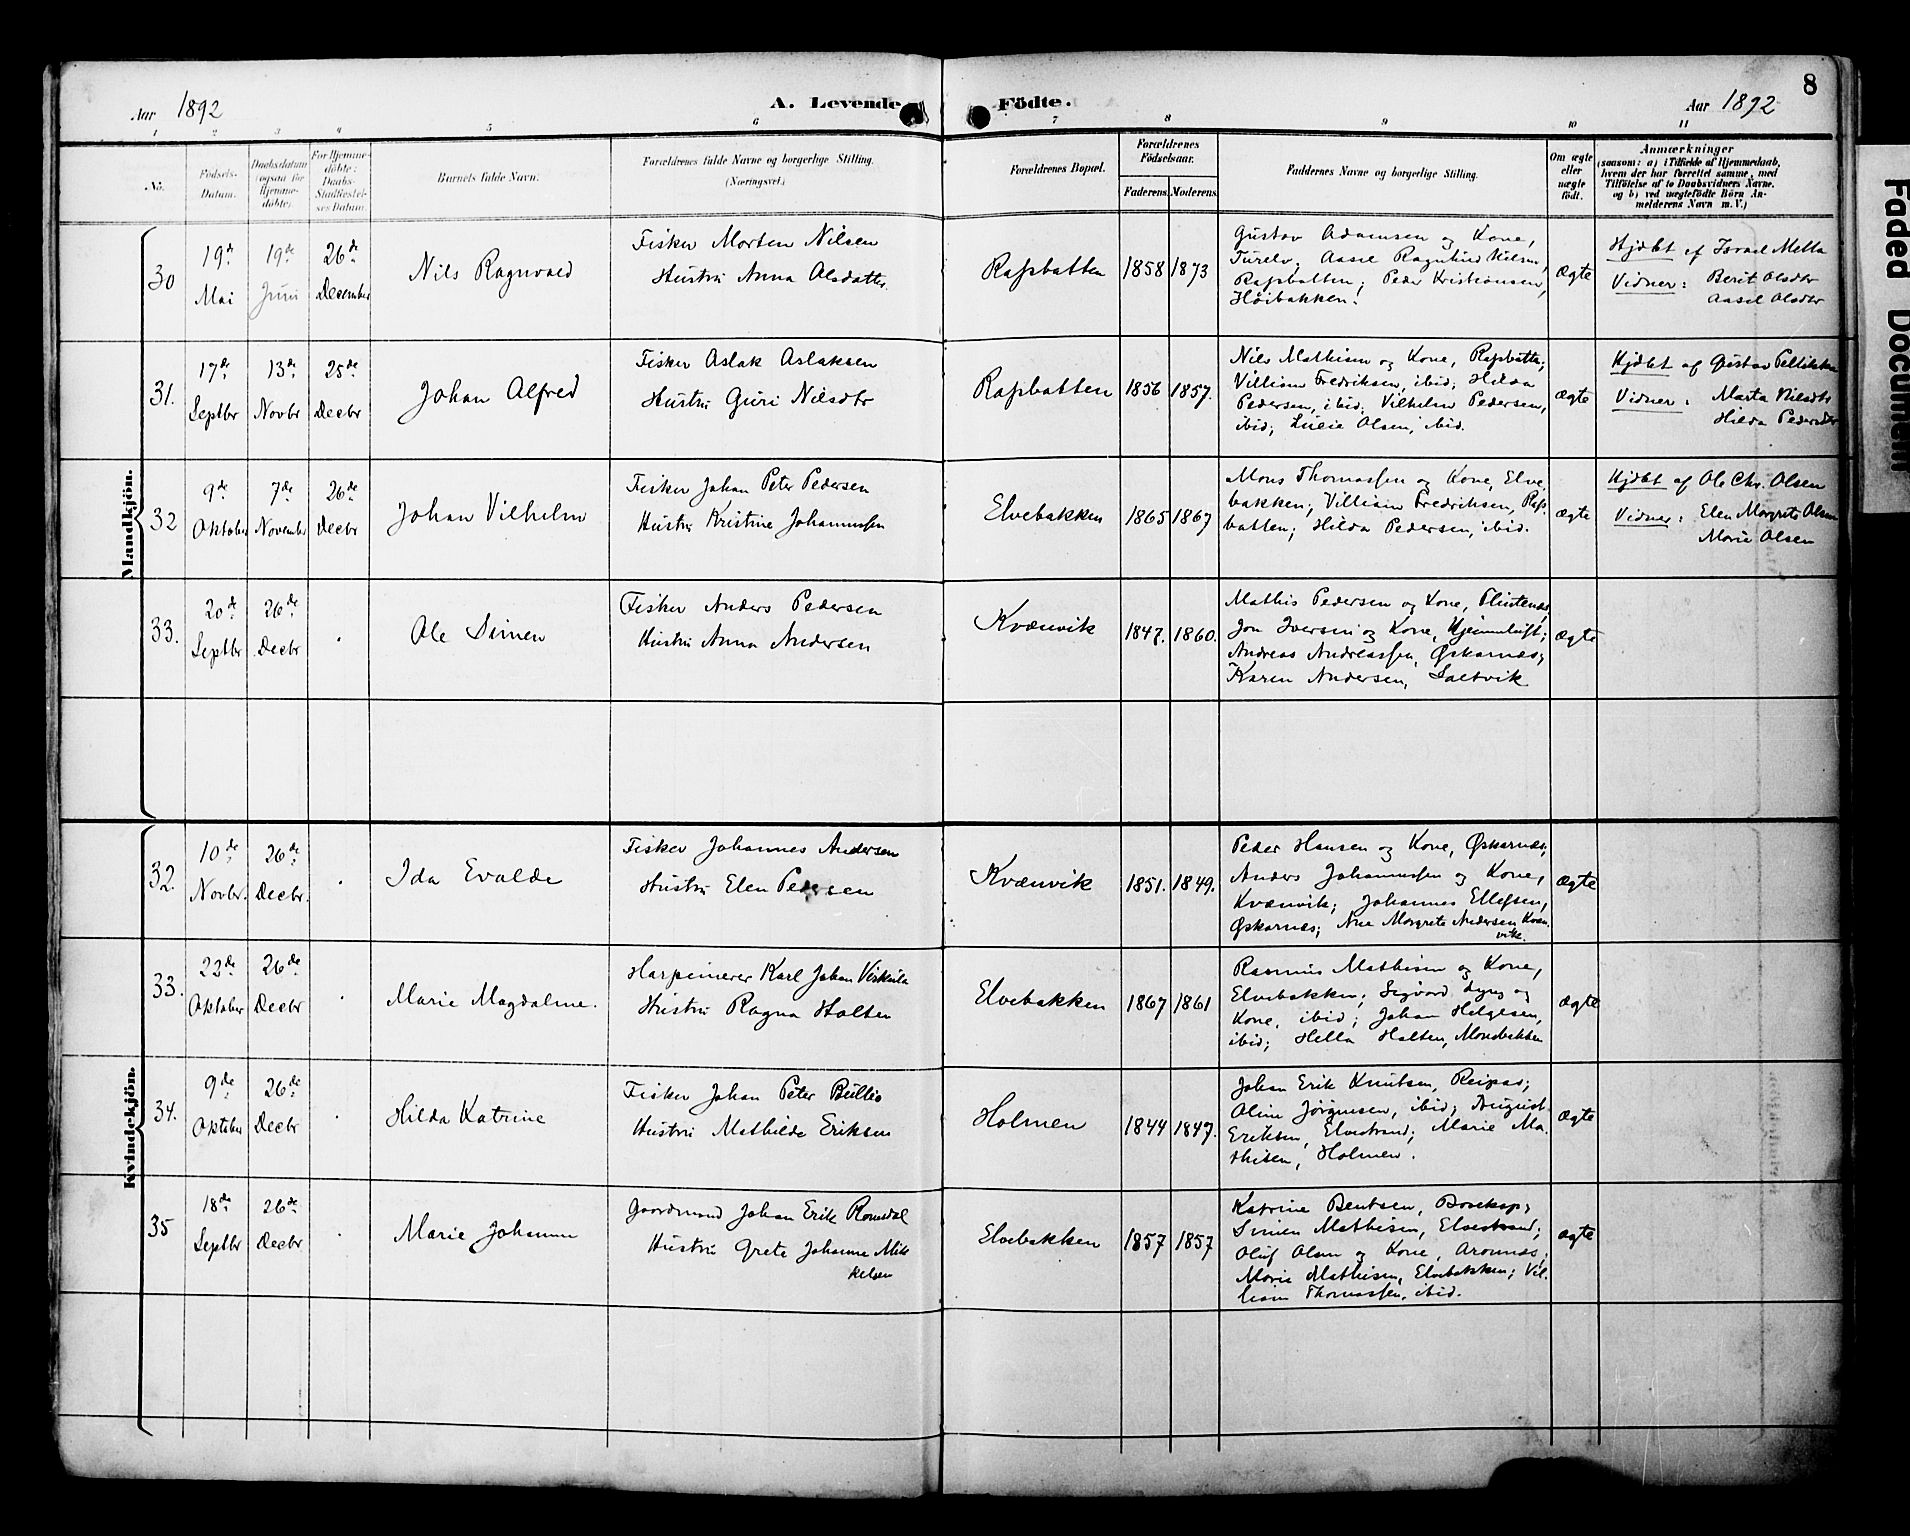 8
Aar 1892
A. Levende Födte.
Aar 1892
1 2 3 4 5 6 7 8 9 10 11
No.
Födsels-
Datum.
Daabsdatum
(ogsaa for
Hjemme-
döbte).
For Hjemme-
döbte:
Daabs-
Stadfæstel-
ses Datum.
Barnets fulde Navn.
Forældrenes fulde Navne og borgerlige Stilling.
(Næringsvei.)
Forældrenes Bopæl.
Forældrenes
Födselsaar.
Faderens. Moderens.
Faddernes Navne og borgerlige Stilling.
Om ægte
eller
uægte
födt.
Anmærkninger
(saasom: a) i Tilfælde af Hjemmedaab,
hvem der har forrettet samme, med
Tilföielse af to Daabsvidners Navne,
og b) ved uægtefödte Börn An-
melderens Navn m. V.)
Mandkjön.
30
19de
Mai
19de
Juni
26de
December
Nils Ragnvald
Fisker Morten Nilsen
Hustru Anna Olsdatter
Rafsbotten
1858 1873
Gustav Adamsen og Kone,
Turelv; Aasel Ragnhild Nilsen,
Rafsbotten; Peder Kristiansen,
Höibakken.
Ægte
Hjdbt af Israel Mella
Vidner: Berit Olsdtr
Aasel Olsdtr
31.
17de
Septbr
13de
Novbr
25de
Decbr
Johan Alfred
Fisker Aslak Aslaksen
Hustru Guri Nilsdtr
Rafsbotten
1856 1857.
Nils Mathisen og Kone, Rafsbotten;
Villiam Fredriksen, ibid; Hilda
Pedersen, ibid; Vilhelm Pedersen,
ibid; Lucie Olsen, ibid.
Ægte
Hjdbt af Gustav
Vidner: Marta Nilsdtr
Hilda Pedersdtr
32
9de
Oktober
7de
November
26de
Decbr
Johan Vilhelm
Fisker Johan Peter Pedersen
Hustru Kristine Johannessen
Elvebakken
1865 1867
Mons Thomassen og Kone, Elve
bakken; Villiam Fredriksen, Rafs
botten; Hilda Pedersen, ibid.
Ægte
Hjdbt af Ole Chr. Olsen
Vidner: Elen Margrete Olsen
Marie Olsen
33.
20de
Septbr
26de
Decbr
Ole Simen
Fisker Anders Pedersen
Hustru Anna Andersen
Kvænvik
1847. 1860.
Mathis Pedersen og Kone, Flintenæs;
Jon Iversen og Kone, Hjemmeluft;
Andreas Andreassen, Øskarnæs;
Karen Andersen, Saltvik
Ægte
Kvindekjön.
32.
10de
Novbr.
26de
Decbr.
Ida Evalde
Fisker Johannes Andersen
Hustru Elen Pedersen
Kvænvik
1851. 1849.
Peder Hansen og Kone, Øskarnæs;
Anders Johannessen og Kone,
Kvænvik; Johannes Ellefsen,
Øskarnæs; Margrete Andersen Kvæn
vik.
Ægte
33.
22de
Oktober
26de
Decbr
Marie Magdalene.
Karl Johan
Hustru Ragna Holten
Elvebakken
1867 1861
Rasmus Mathisen og Kone,
Elvebakken; Sigvard Lyng og
Kone, ibid; Johan Helgesen,
ibid; Hella Holten,
Ægte
34.
9de
Oktober
26de
Decbr
Hilda Katrine
Fisker Johan Peter
Hustru Mathilde Eriksen
Holmen
1844 1847.
Johan Erik Knutsen, Reipas;
Oline Jörgensen, ibid; August
Eriksen, Elvestrand; Marie Ma
thisen, Holmen.
Ægte
35
18de
Septbr
26de
Decbr
Marie Johanne
Gaardmand Johan Erik Romsdal
Hustru Grete Johanne Mik
kelsen
Elvebakken
1857 1857
Katrine Bentsen, Bosekop;
Simen Mathisen, Elvestrand;
Oluf Olsen og Kone, Aronnæs;
Marie Mathisen, Elvebakken; Vil
liam Thomassen, ibid.
Ægte
Faded Document